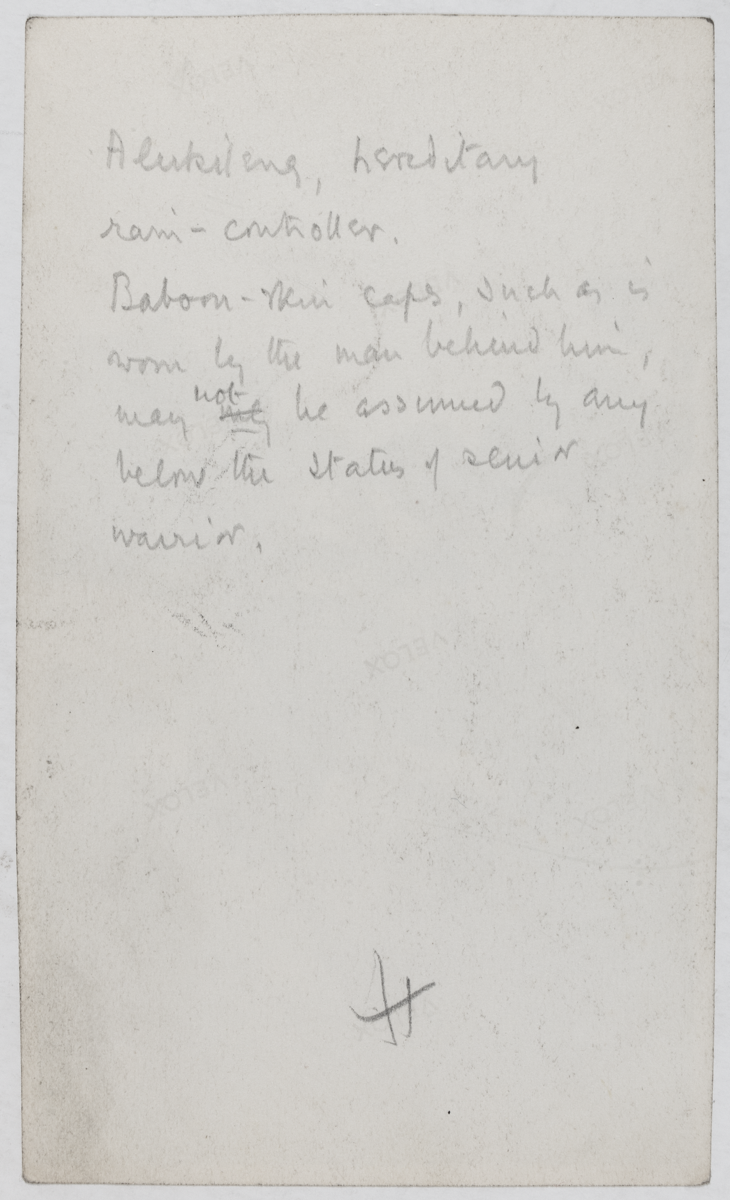 Alukileng, hereditary
rain-controller.
Baboon-skin caps, such as is
worn by the man behind him,
may not be assumed by any
below the status of senior
warrior.
VELOX
VELOX
H